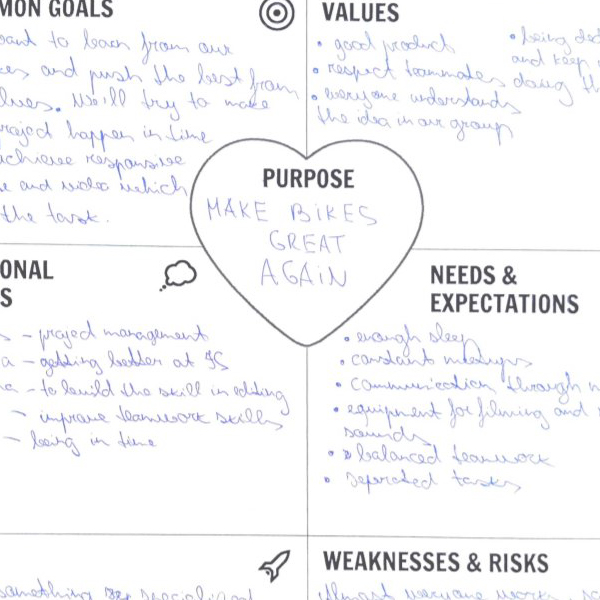 MON GOALS
want to learn from our
and push the best from
We'll try to make
project happen in time
achieve responsive
and video which
the task.
VALUES
• good product
• respect teammates
• everyone understands
the idea in our group
• being
and keep
doing
PURPOSE
MAKE BIKES
GREAT
AGAIN
ONAL
S
- project management
a - getting better at JS
- to build the skill in editing
- improve teamwork skills
- being in time
NEEDS &
EXPECTATIONS
• enough sleep
• constant meetups
• communication through
• equipment for filming and
sounds
• balanced teamwork
• seperated tasks
something
WEAKNESSES & RISKS
Almost everyone works